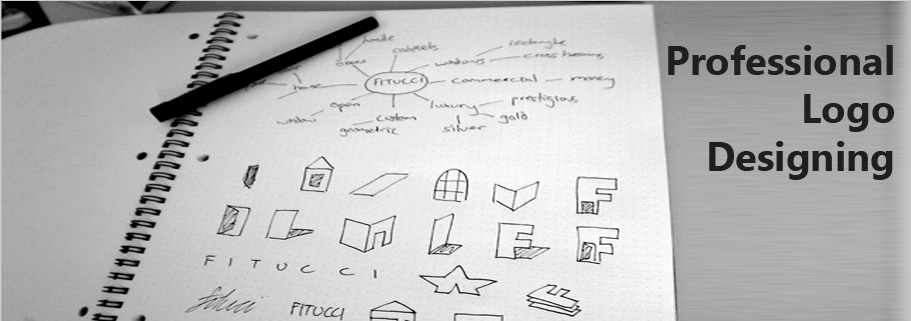 handle
cabinets
rectangle
doors
windows
cross beams
house
FITUCCI
commercial
money
open
luxury
prestigious
window
custom
gold
geometric
silver
Professional
Logo
Designing
F I T U C C I
FITUCCI